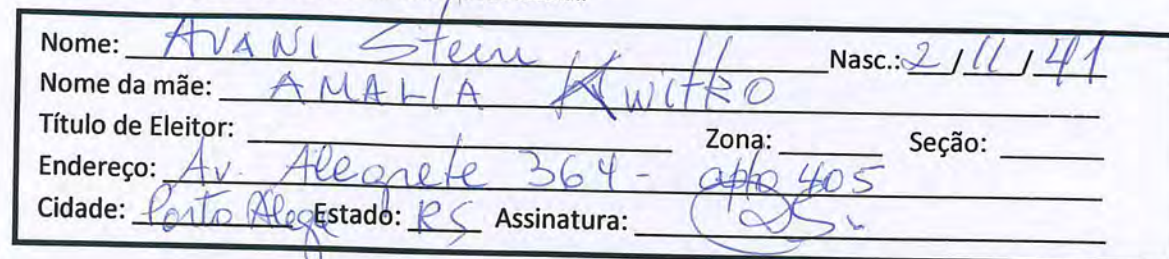 Nome: AVANI Stein Nasc.: 2/11/41
Nome da mãe: AMALIA KwitKO
Título de Eleitor: Zona: Seção:
Endereço: Av. Alegrete 364 - apto 405
Cidade: Porto Alegre Estado: RS Assinatura: